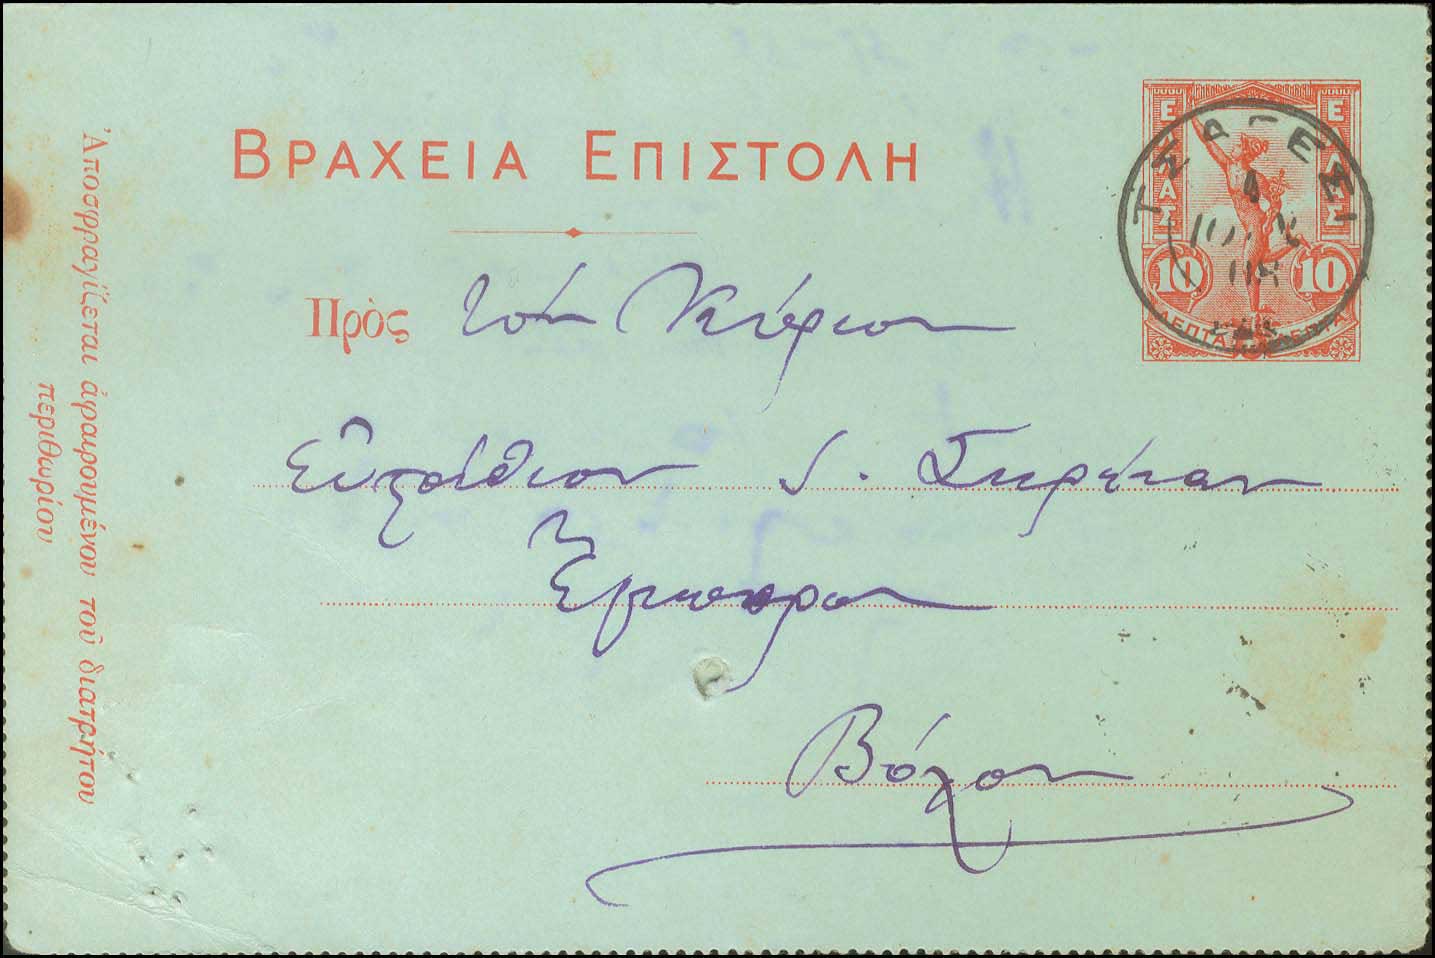 ΒΡΑΧΕΙΑ ΕΠΙΣΤΟΛΗ
ΕΛΛΑΣ
ΕΛΛΑΣ
10
10
ΛΕΠΤΑ ΛΕΠΤΑ
Πρὸς Τὸν Κύριον
Εὐστάθιον
Ἔμπορον
Βόλον
Ἀποσφραγίζεται ἀφαιρουμένου τοῦ διατρήτου
περιθωρίου